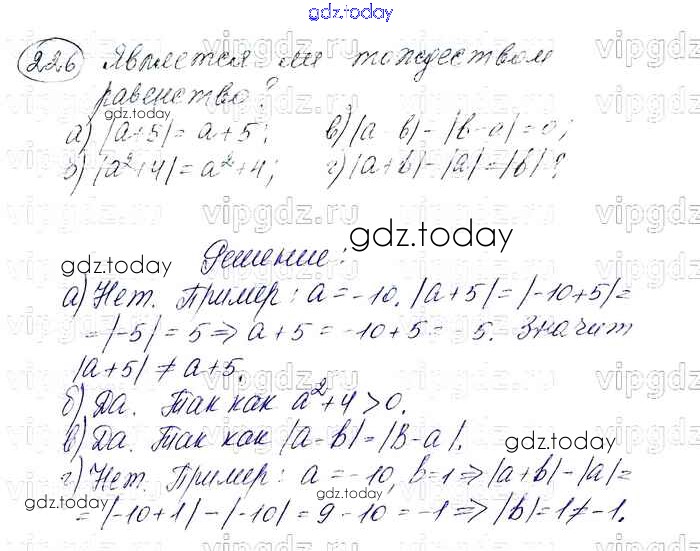 gdz.today
226 Является ли тождеством
равенство?
gdz.today
а) |a+5| = a+5; в) |a-b| - |b-a| = 0;
б) |a²+4| = a²+4; г) |a+b| - |a| = |b|?
gdz.today
gdz.today
Решение:
а) Нет. Пример: a = -10. |a+5| = |-10+5| =
= |-5| = 5 => a+5 = -10+5 = -5. Значит
|a+5| ≠ a+5.
б) Да. Так как a²+4 > 0.
в) Да. Так как |a-b| = |b-a|.
gdz.today
г) Нет. Пример: a = -10, b=1 => |a+b| - |a| =
= |-10+1| - |-10| = 9 - 10 = -1 => |b| = 1 ≠ -1.
gdz.today
vipgdz.ru